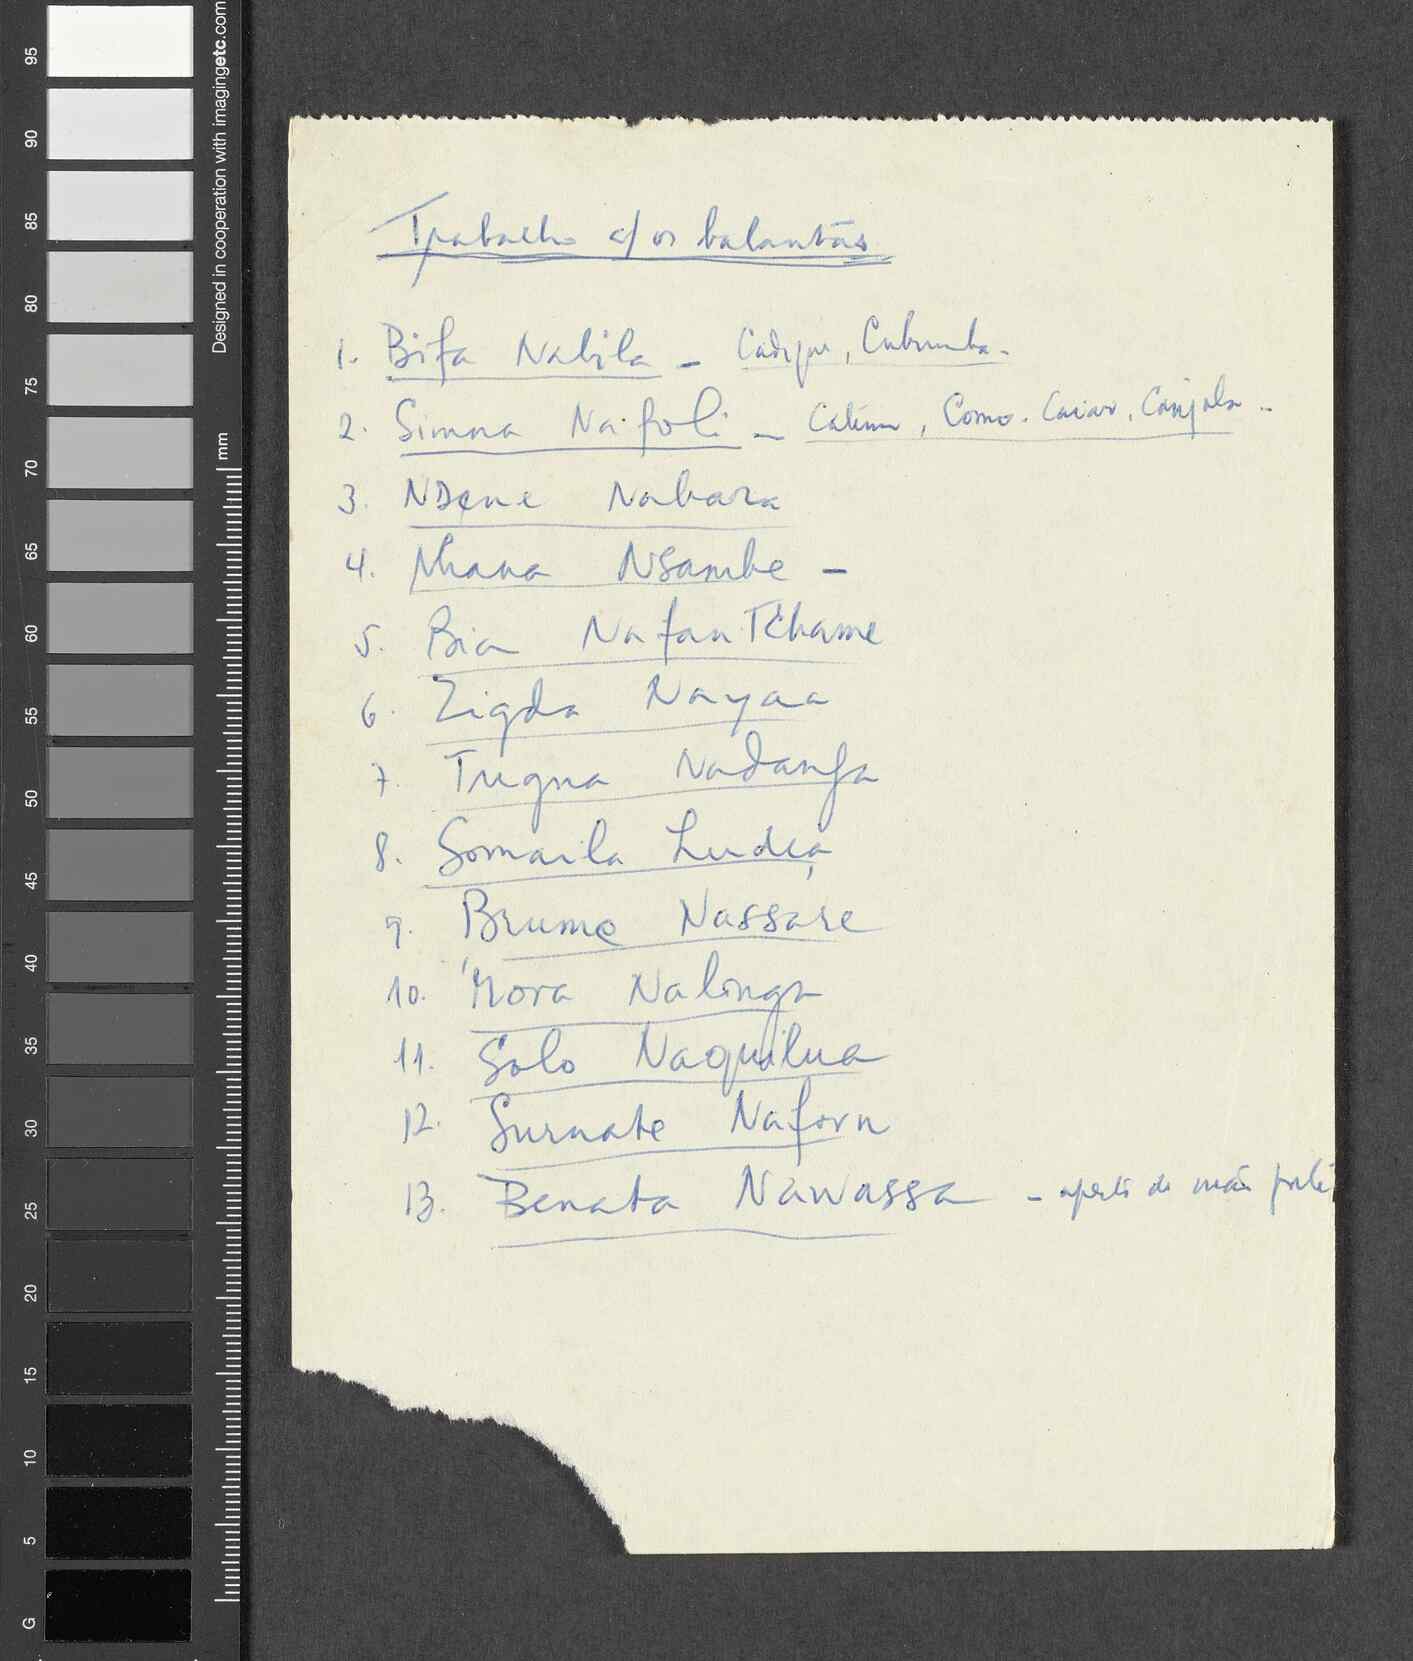 Trabalho c/ os balantas
1. Bifa Nabila - Cadique, Cubumba.
2. Simna Nafoli - Catima, Como. Caiar, Canjola -
3. NDene Nabara
4. Nhana NSambe -
5. Bia NafanTchame
6. Zigda Nayaa
7. Tugna Nadanfa
8. Somaila Ludea
9. Brume Nassare
10. Mora Nalinga
11. Solo Naquilua
12. Surnate Naforn
13. Benata Nawassa - aperto de mão
Designed in cooperation with imagingetc.com
mm
95
90
85
80
75
70
65
60
55
50
45
40
35
30
25
20
15
10
5
G